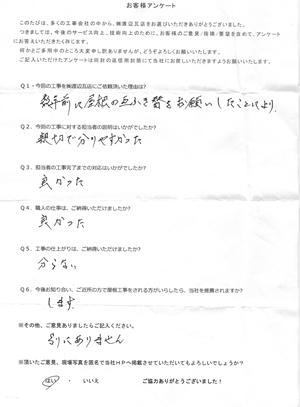 お客様アンケート
このたびは、多くの工事会社の中から、㈱渡辺瓦店をお選びいただきありがとうございました。
つきましては、今後のサービス向上、技術向上のために、お客様のご意見・指摘・要望を含めて、アンケートに
お答えいただきたく存じます。
何かとご多用中のところ大変申し訳ありませんが、どうぞよろしくお願いいたします。
ご記入いただけたアンケートは同封の返信用封筒にて当社にお戻しいただきますようお願いいたします。
Q1・今回の工事を㈱渡辺瓦店にご依頼頂いた理由は?
数年前に屋根の瓦ふき替をお願いしたことにより。
Q2・今回の工事に対する担当者の説明はいかがでしたか?
親切で分りやすかった
Q3・担当者の工事完了までの対応はいかがでしたか?
良かった
Q4・職人の仕事は、ご納得いただけましたか?
良かった
Q5・工事の仕上がりは、ご納得いただけましたか?
分らない
Q6・今後お知り合い、ご近所の方で屋根工事をされる方がいらしたら、当社を推薦されますか?
します。
※その他、ご意見ありましたらご記入ください。
別にありません
※頂いたご意見、現場写真を匿名で当社HPへ掲載させていただいてもよろしいでしょうか?
はい ・ いいえ ご協力ありがとうございました!